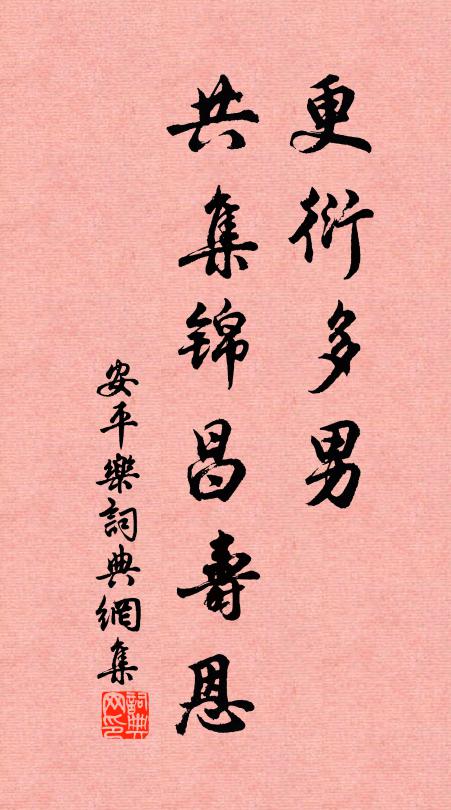 更衍多男
共集锦昌壽恩
安平樂詞典網集
詞典
网印